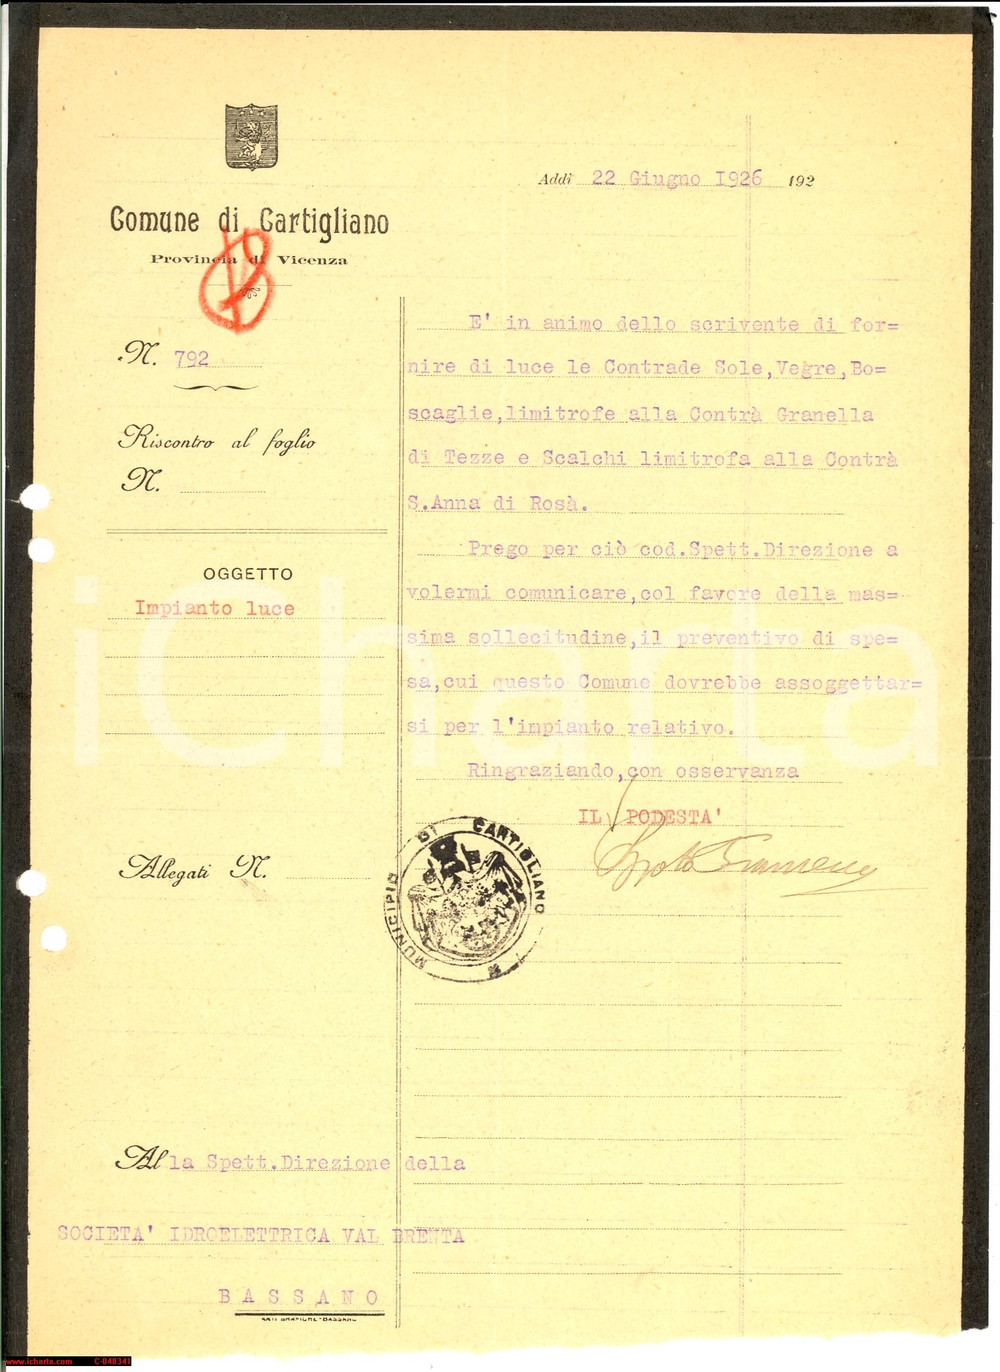 Addì 22 Giugno I926 192
Comune di Cartigliano
Provincia di Vicenza
N. 792
Riscontro al foglio
N.
OGGETTO
Impianto luce
E' in animo dello scrivente di for=
nire di luce le Contrade Sole,Vegre,Bo=
scaglie,limitrofe alla Contrà Granella
di Tezze e Scalchi limitrofa alla Contrà
S.Anna di Rosà.
Prego per ciò cod.Spett.Direzione a
volermi comunicare,col favore della mas=
sima sollecitudine,il preventivo di spe=
sa,cui questo Comune dovrebbe assoggettar=
si per l'impianto relativo.
Ringraziando,con osservanza
IL PODESTA'
MUNICIPIO DI CARTIGLIANO
Allegati N.
Alla Spett.Direzione della
SOCIETA' IDROELETTRICA VAL BRENTA
BASSANO
ARTI GRAFICHE-BASSANO
iCharta
www.icharta.com C-048341